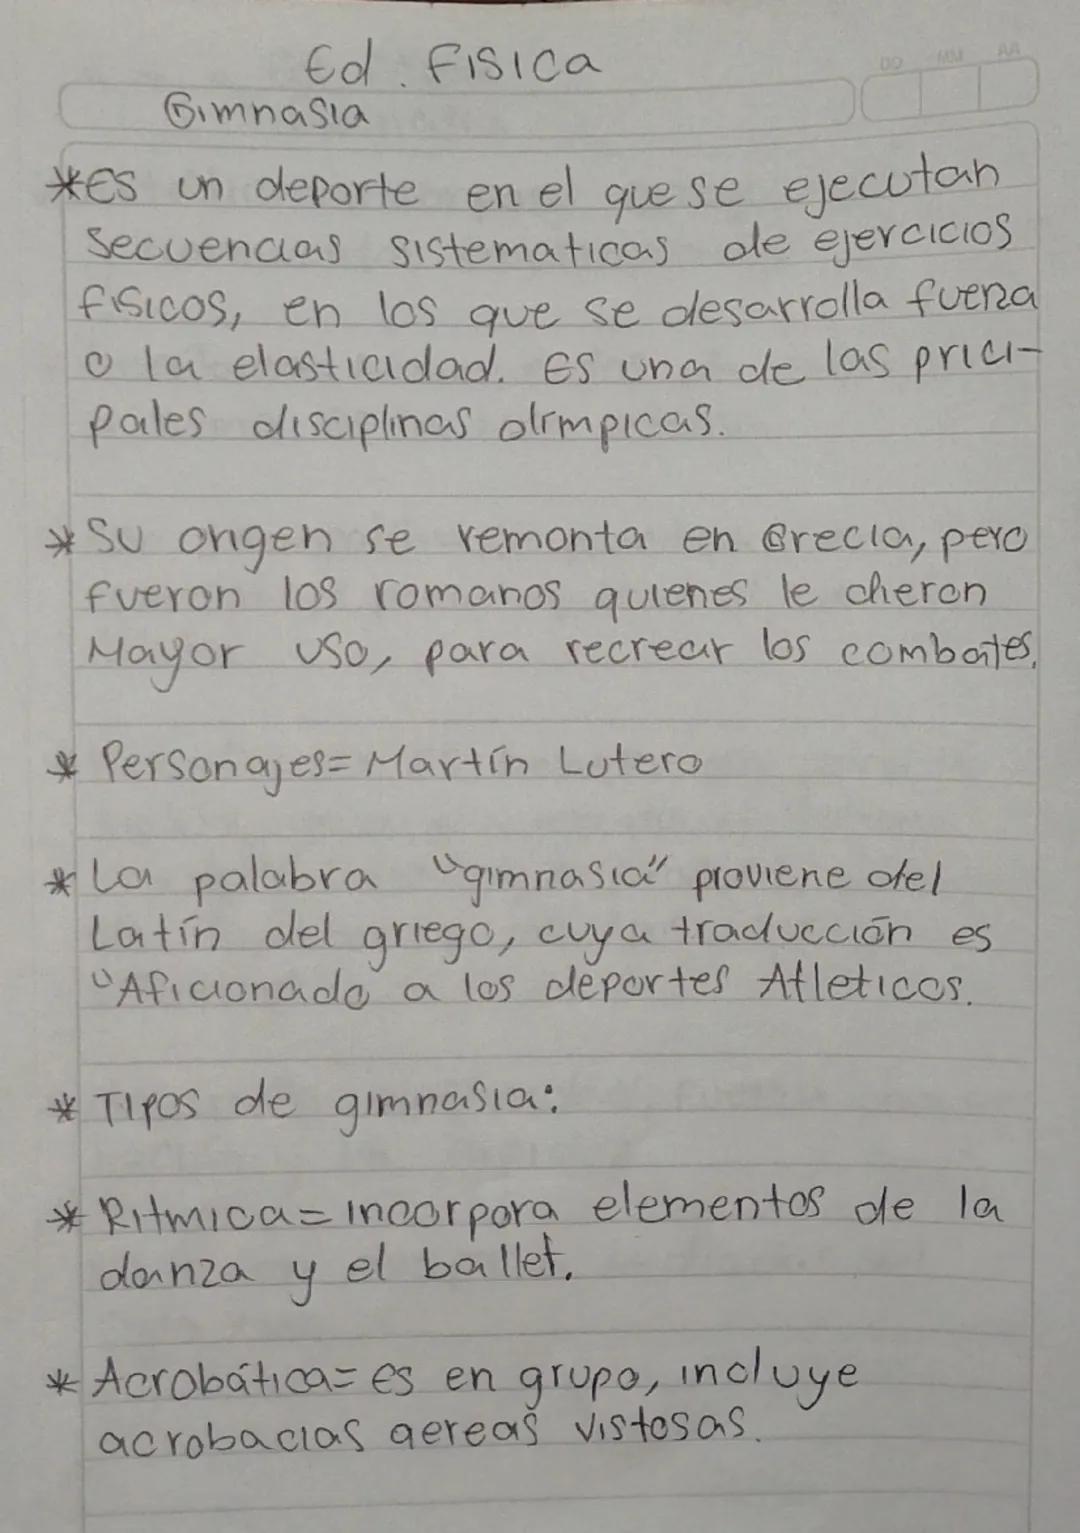 Ed. Fisica
DD MM AA
Gimnasia
*Es un deporte en el que se ejecutan
secuencias sistematicas de ejercicios
fisicos, en los que se desarrolla fuerza
o la elasticidad. Es una de las prici-
pales disciplinas olimpicas.
* Su origen se remonta en Grecia, pero
fueron los romanos quienes le dieron
Mayor uso, para recrear los combates.
* Personajes= Martín Lutero
* La palabra "gimnasia" proviene del
Latín del griego, cuya traducción es
"Aficionado a los deportes Atleticos.
* Tipos de gimnasia:
* Ritmica= incorpora elementos de la
danza y el ballet.
* Acrobática= es en grupo, incluye
acrobacias aereas vistosas.